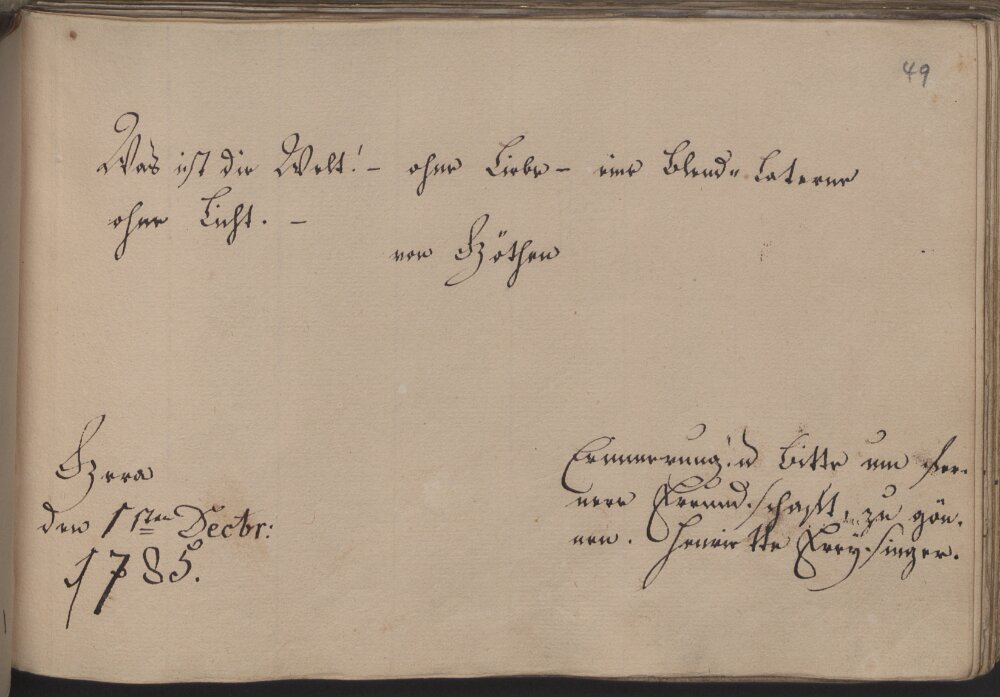 49
Was ist die Welt! – ohne Liebe – eine Blend= Laterne
ohne Licht. –
von Göthen
Gera
den 1sten Decbr:
1785.
Erinnerung! u Bitte um fer-
nere Freund-schafft, zu gön-
nen. Henriette Frey-singer.